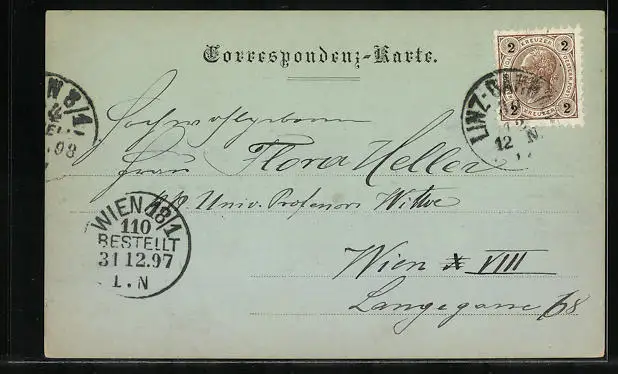 Correspondenz-Karte.
2 KREUZER 2
2 KREUZER 2
LINZ-BAHN
12 N
N 8/1
98
Hochwohlgeboren
Frau Flora Heller
Univ. Professors Witwe
WIEN 18/1
110
BESTELLT
31 12.97
1.N
Wien VIII
Langegasse 68